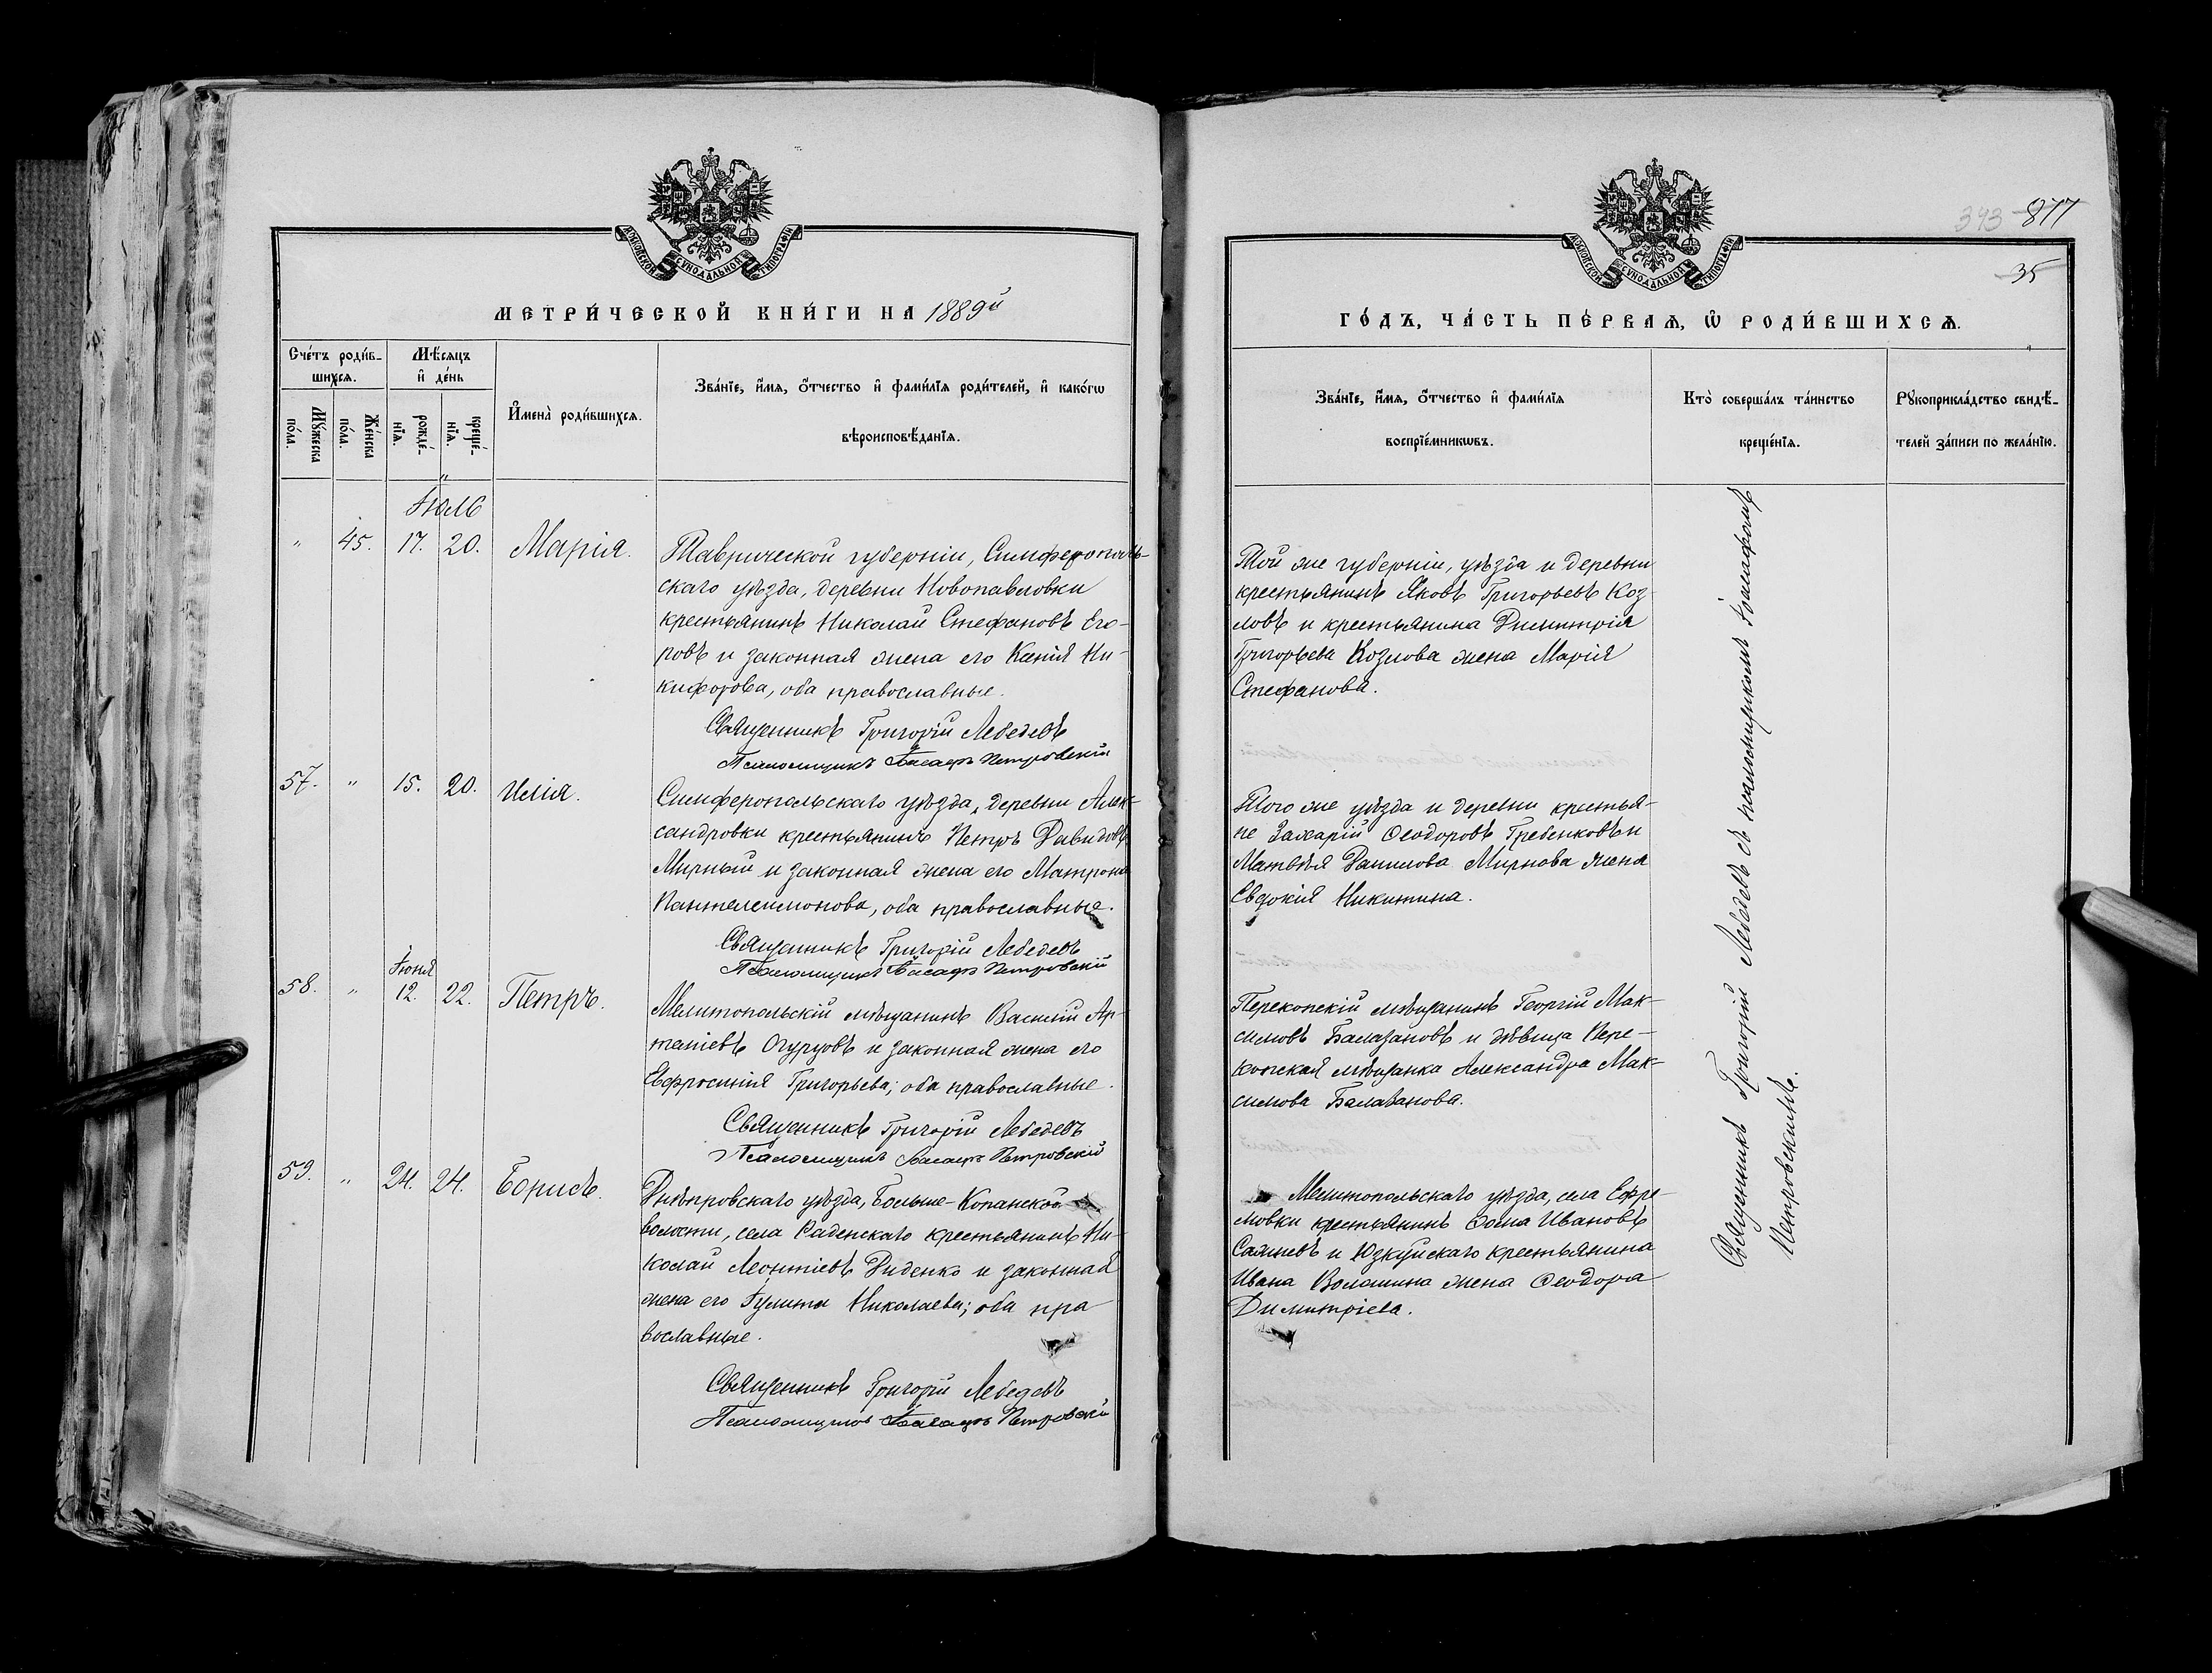 МОСКОВСКОЙ СѴНОДАЛЬНОЙ ТИПОГРАФІИ
МЕТРИ́ЧЕСКОЙ КНИ́ГИ НА 1889й
Сче́тъ роди́в-
шихся.
Мѣ́сяцъ
и҆ де́нь
Мꙋ́жеска
по́ла.
Же́нска
по́ла.
рожде́-
нїѧ.
креще́-
нїѧ.
И҆мена̀ роди́вшихсѧ.
Зва́нїе, и҆́мѧ, ѻ҆́тчество и҆ фами́лїѧ роди́телей, и҆ како́гѡ
вѣроисповѣ́данїѧ.
Іюль
" 45. 17. 20. Марія.
Таврической губерніи, Симферополь-
скаго уѣзда, деревни Новопавловки
крестьянинъ Николай Стефановъ Его-
ровъ и законная жена его Ксенія Ни-
кифорова, оба православные.
Священникъ Григорій Лебедевъ
Псаломщикъ Іоасафъ Петровскій
57. " 15. 20. Илія.
Симферопольскаго уѣзда, деревни Алек-
сандровки крестьянинъ Петръ Давидовъ
Мирный и законная жена его Матрона
Пантелеимонова, оба православные.
Священникъ Григорій Лебедевъ
Псаломщикъ Іоасафъ Петровскій
Іюня
58. " 12. 22. Петръ.
Мелитопольскій мѣщанинъ Василій Ар-
теміевъ Огурцовъ и законная жена его
Евфросинія Григорьева; оба православные.
Священникъ Григорій Лебедевъ
Псаломщикъ Іоасафъ Петровскій
59. " 24. 24. Борисъ.
Днѣпровскаго уѣзда, Больше-Копанской
волости, села Раденскаго крестьянинъ Ни-
колай Леонтіевъ Диденко и законная
жена его Іулита Николаева; оба пра
вославные.
Священникъ Григорій Лебедевъ
Псаломщикъ Іоасафъ Петровскій
343 877
35
МОСКОВСКОЙ СѴНОДАЛЬНОЙ ТИПОГРАФІИ
ГО́ДЪ, ЧА́СТЬ ПЕ́РВАѦ, Ѡ҆ РОДИ́ВШИХСѦ.
Зва́нїе, и҆́мѧ, ѻ҆́тчество и҆ фами́лїѧ
воспрїе́мникѡвъ.
Кто̀ соверша́лъ та́инство
креще́нїѧ.
Рꙋкоприкла́дство свидѣ́-
телей за́писи по жела́нїю.
Той же губерніи, уѣзда и деревни
крестьянинъ Яковъ Григорьевъ Коз
ловъ и крестьянина Димитрія
Григорьева Козлова жена Марія
Стефанова.
Того же уѣзда и деревни крестья-
не Захарій Ѳеодоровъ Гребенковъ и
Матвѣя Данилова Мирнова жена
Евдокія Никитина.
Перекопскій мѣщанинъ Георгій Мак-
симовъ Балабановъ и дѣвица Пере-
копская мѣщанка Александра Мак-
симова Балабанова.
Мелитопольскаго уѣзда, села Ефре-
мовки крестьянинъ Ѳома Ивановъ
и Юзкуйскаго крестьянина
Ивана Волошина жена Ѳеодора
Димитріева.
Священникъ Григорій Лебедевъ съ псаломщикомъ Іоасафомъ
Петровскимъ.